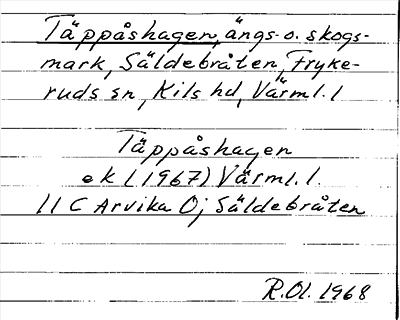 Täppåshagen, ängs- o. skogs-
mark, Säldebråten, Fryke-
ruds sn, Kils hd, Värml. l
Täppåshagen
ek (1967) Värml. l.
11 C Arvika Ö; Säldebråten
R.Ol. 1968